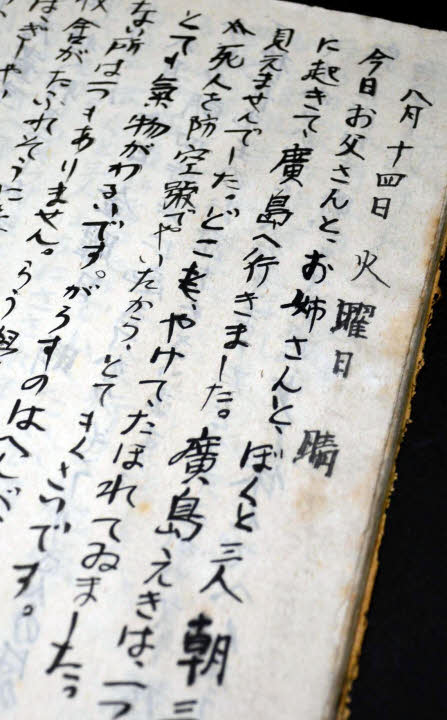 八月十四日 火曜日 晴
今日お父さんと、お姉さんと、ぼくと三人 朝三
に起きて、廣島へ行きました。廣島えきは、一つ
見えませんでした。どこも、やけて、たほれてゐました
死人を防空壕でやいたから、とてもくさいです。
とても氣物がわるいです。がらすのはへん
ない所は一つもありません。らう
舎がたふれそうに